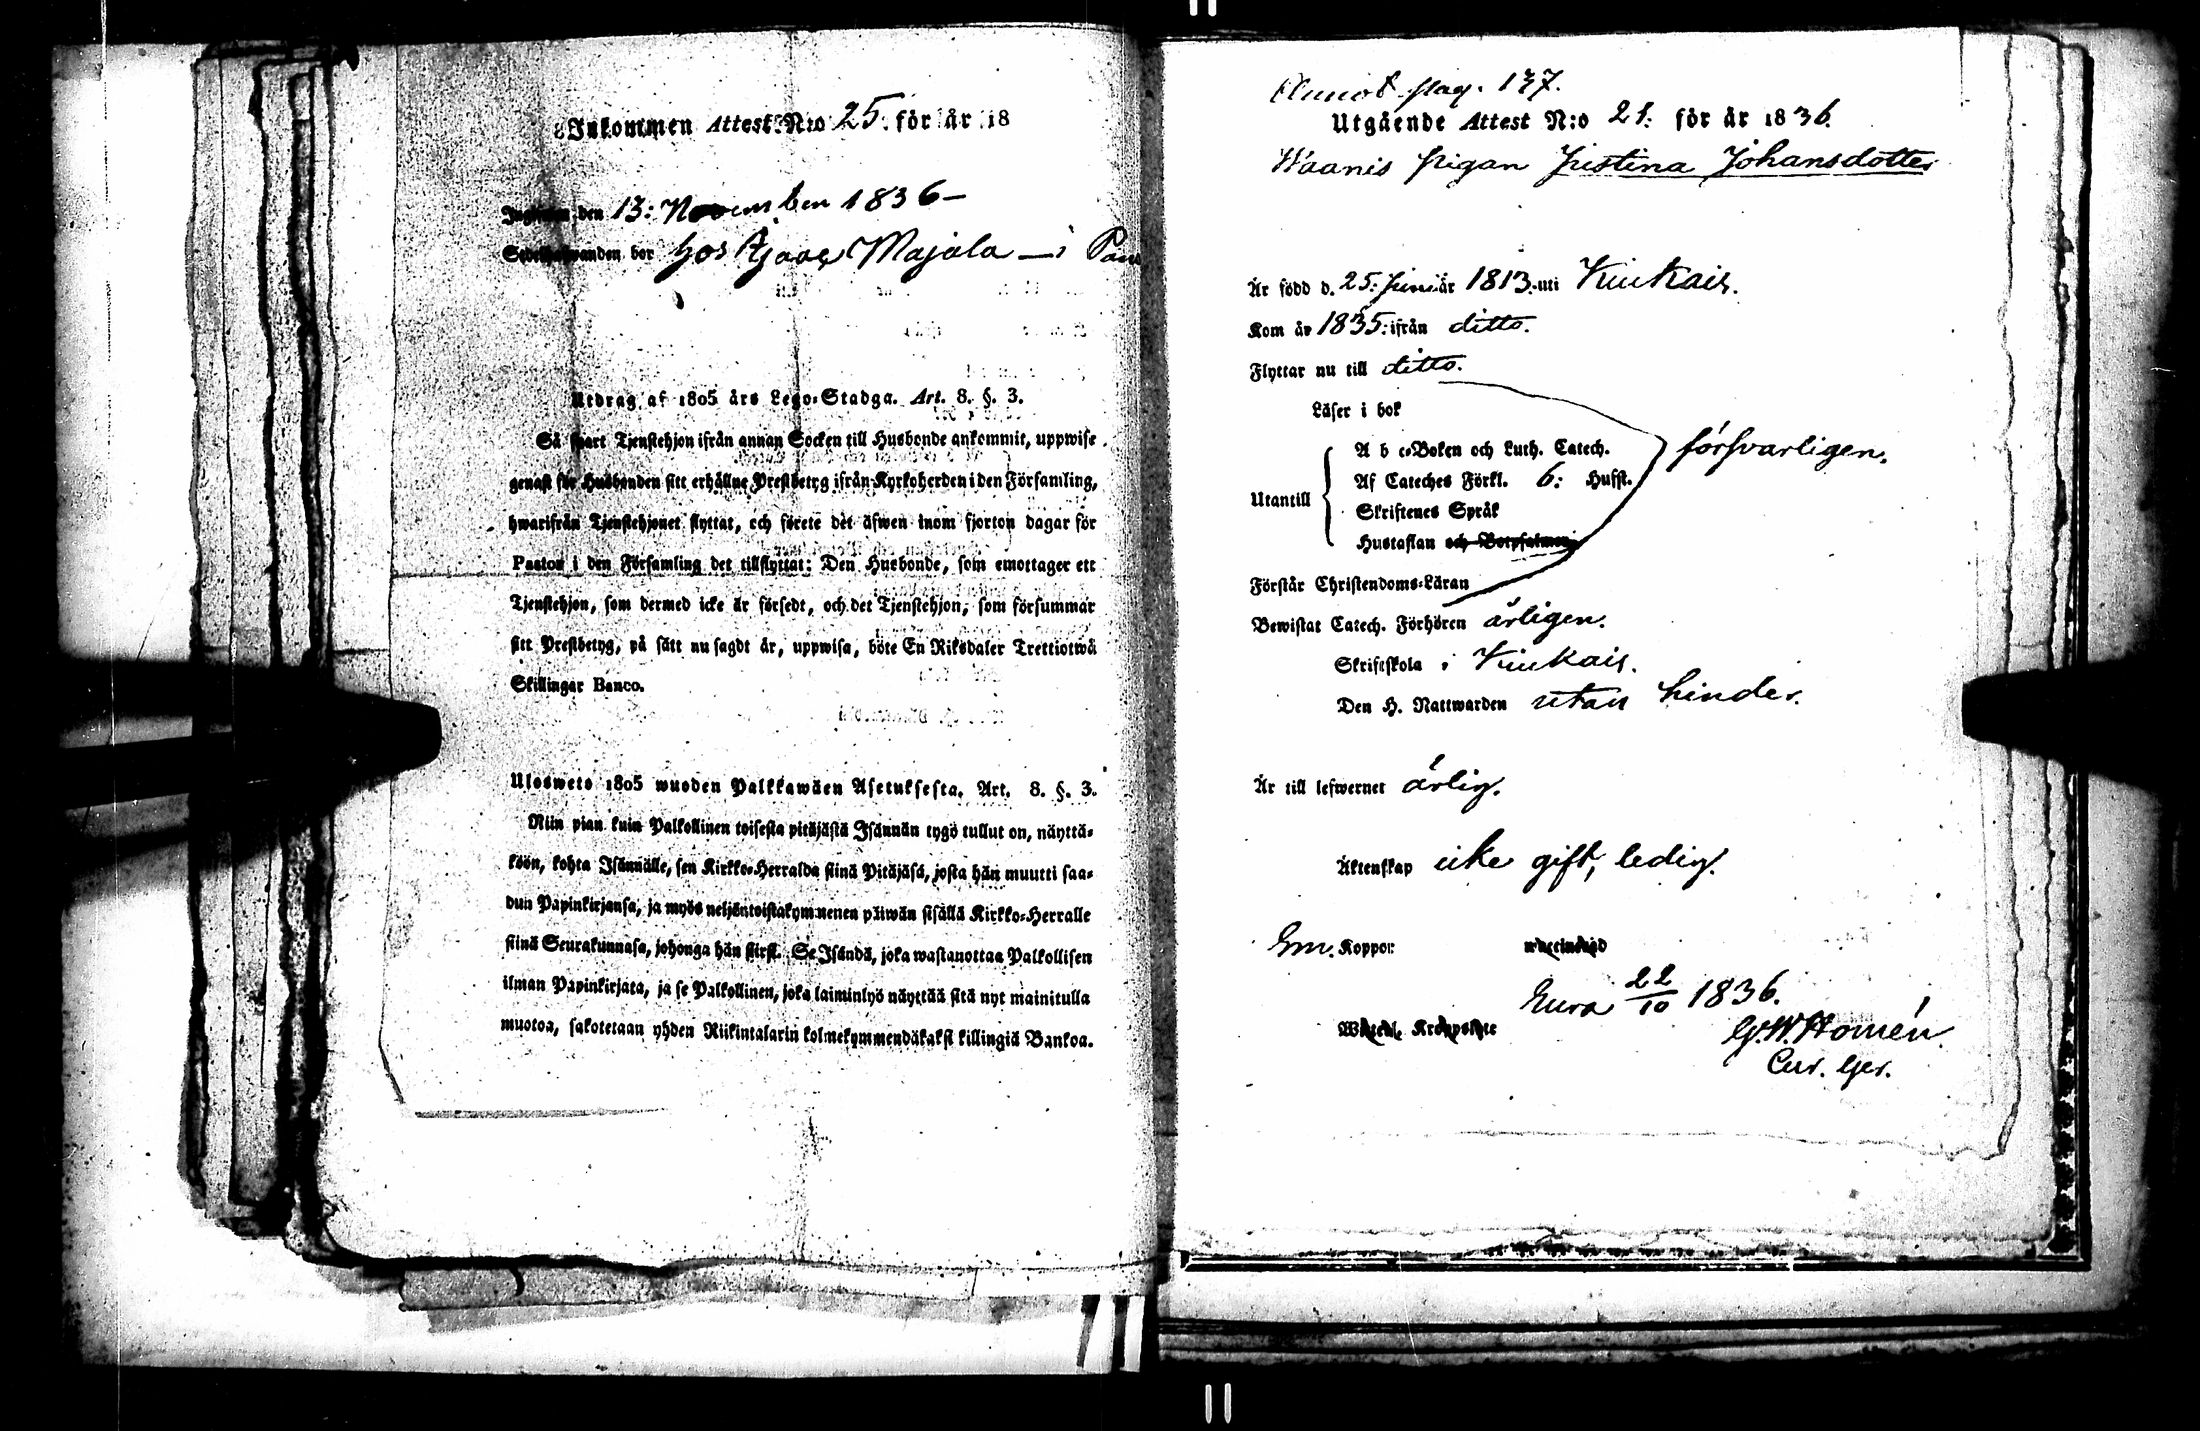 Inkommen Attest N:o 25. för år 18
Ingifwen den 13: November 1836 —
Sedelhafwanden bor hos Isaac Majala — i
Utdrag af 1805 års Lego-Stadga. Art. 8. §. 3.
Så snart Tjenstehjon ifrån annan Socken till Husbonde ankommit, uppwise
genast för Husbonden sitt erhållne Prestbetyg ifrån Kyrkoherden i den Församling,
hwarifrån Tjenstehjonet flyttat, och förete det äfwen inom fjorton dagar för
Pastor i den Församling det tillflyttat: Den Husbonde, som emottager ett
Tjenstehjon, som dermed icke är försedt, och det Tjenstehjon, som försummar
sitt Prestbetyg, på sätt nu sagdt är, uppwisa, böte En Riksdaler Trettiotwå
Skillingar Banco.
Uloswets 1805 wuoden Palkkawäen Asetuksesta. Art. 8. §. 3.
Niin pian kuin Palkollinen toisesta pitäjästä Isännän tygö tullut on, näyttä-
köön, kohta Isännälle, sen Kirkko-Herralda siinä Pitäjäsä, josta hän muutti saa-
dun Papinkirjansa, ja myös neljäntoistakymmenen päiwän sisällä Kirkko-Herralle
siinä Seurakunnasa, johonga hän siirsi. Se Isändä, joka wastanottaa Palkollisen
ilman Papinkirjata, ja se Palkollinen, joka laiminlyö näyttää sitä nyt mainitulla
muotoa, sakotetaan yhden Riikintalarin kolmekymmendäkaksi killingiä Bankoa.
pag. 137.
Utgående Attest N:o 21: för år 1836.
Waanis pigan Justina Johansdotter
Är född d. 25: Junii år 1813. uti Kiukais.
Kom år 1835: ifrån ditto.
Flyttar nu till ditto.
Läser i bok
A b c-Boken och Luth. Catech. försvarligen.
Utantill Af Cateches Förkl. 6: Hufst.
Skriftenes Språk
Hustaflan och Botpsalmen
Förstår Christendoms-Läran
Bewistat Catech. Förhören årligen.
Skriftskola i Kiukais.
Den H. Nattwarden utan hinder.
Är till lefwernet ärlig.
Äktenskap icke gift, ledig.
Em. Koppor
Eura 22/10 1836.
G. W. Homén.
Cur. Ger.